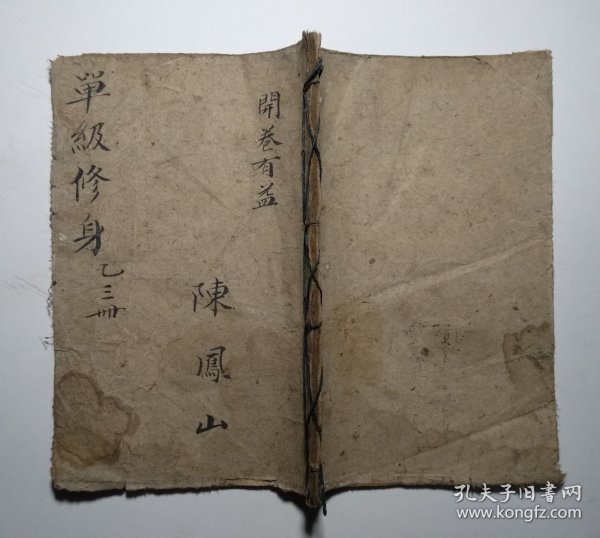 開卷有益
陳鳳山
單級修身 乙三冊
孔夫子旧书网
www.kongfz.com